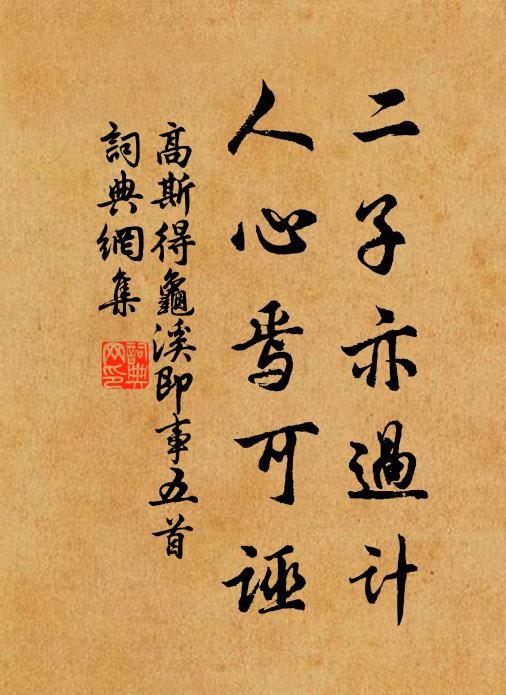 二子亦過計
人心焉可誣
高斯得龜溪即事五首
詞典網集
詞典
網印